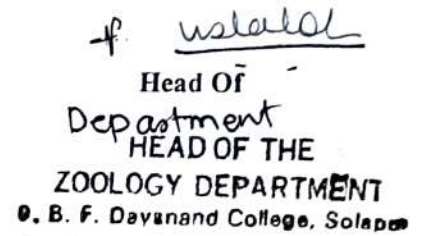 Head Of
Department
HEAD OF THE
ZOOLOGY DEPARTMENT
D. B. F. Dayanand College, Solapur